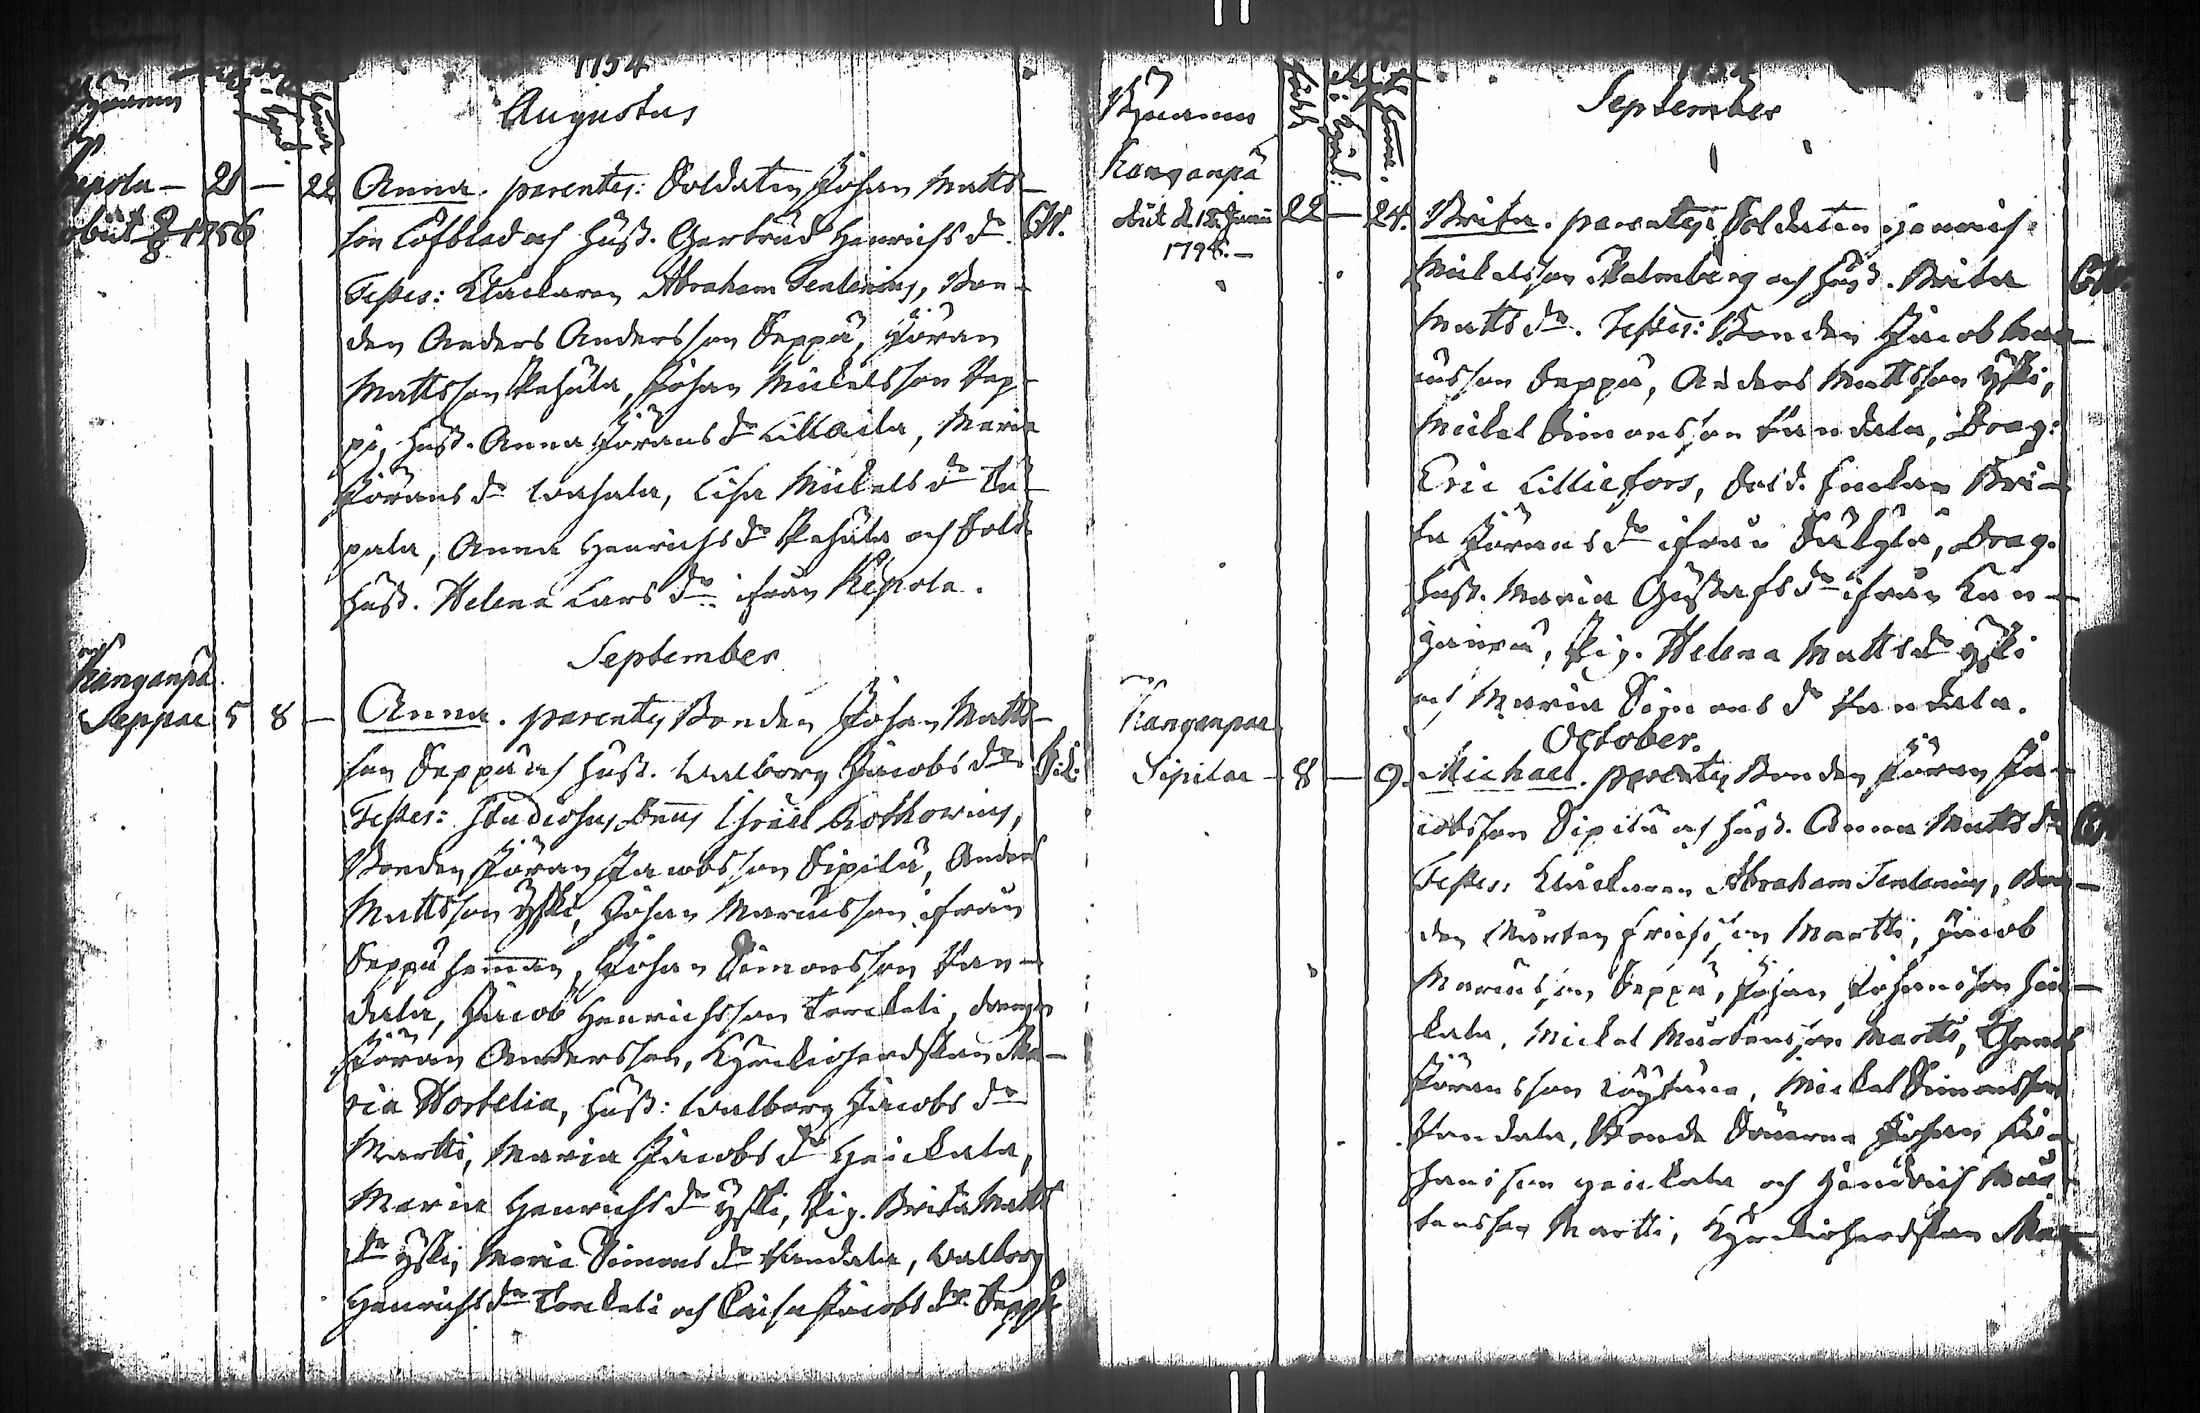 1754
Augustus
Kepola — 21 — 22
obiit 8/8 1756
Anna. parentes: Soldaten Johan Matts-
son Löfblad och Hust. Gertrud Henrichs dr.
Testes: Klåckaren Abraham Tenlenius, Bon-
den Anders Andersson Seppä, Jöran
Mattsson Pehula, Johan Mickelsson Pep-
pi, Hust. Anna Jörans dr Lillaila, Maria
Jörans dr Wahala, Lisa Mickels dr Ta-
pala, Anna Henrichs dr Pehula och Sold.
Hust. Helena Lars dr ifrån Kepola.
September
Kanganpä
Seppae 5 8 —
Anna. parentes Bonden Johan Matts-
son Seppä och Hust. Walborg Jacobs dr
Testes: Studiosus Dnus Isräel Rothovius,
Bonden Jöran Jacobsson Sipilä, Anders
Mattsson Yski, Johan Marcusson ifrån
Seppä heman, Johan Simonsson Van-
dala, Jacob Henrichsson Torckeli, drengen
Jöran Andersson, Kyrckioherdskan Ma-
ria Hortelia, Hust: Walborg Jacobs dr
Martti, Maria Jacobs dr Heickala,
Maria Henrichs dr Yski, Pig. Brita Matts
dr Yski, Maria Simons dr Vandala, Walborg
Henrichs dr Torckeli och Caisa Jacobs dr Seppä
September
Kjuarnu
Kanganpä
obiit d. 15. Junii 22 — 24.
1795. —
Brita. parentes Soldaten Henrich
Mickelsson Malmberg och Hust. Brita
Matts dr. Testes: Bonden Jacob Mar-
cusson Seppä, Anders Mattsson Yski,
Mickel Simonsson Vandala, Drag:
Eric Lilliefors, Sold. Enckan Bri-
ta Jörans dr ifrån Säkylä, Drag.
Hust. Maria Gustafs dr ifrån Kan-
, Pig. Helena Matts dr Yski
och Maria Simons dr Vandala.
October.
Kanganpaa
Sipilae — 8 — 9.
Michael. parentes Bonden Jöran Ja-
cobsson Sipilä och Hust. Anna Matts dr
Testes: Klåckaren Abraham Tenlenius, Bon-
den Mårten Erichsson Martti, Jacob
Marcusson Seppä, Johan Johansson Hei-
kala, Mickel Mårtensson Martti,
Jöransson Löytäne, Mickel Simonsson
Vandala, Bonde Sönerne Johan Jo-
hansson Heickala och Hendrich Mår-
tensson Martti, Kyrckioherdskan Ma-